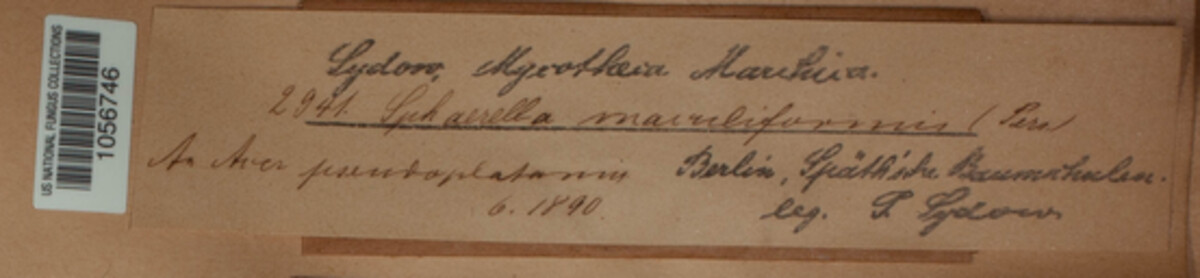 US NATIONAL FUNGUS COLLECTIONS
1056746
Sydow, Mycotheca Marchica.
2941. Sphaerella maculiformis (Pers)
An Acer pseudoplatanus
Berlin, Späth'sche Baumschulen.
6. 1890.
leg. P. Sydow.